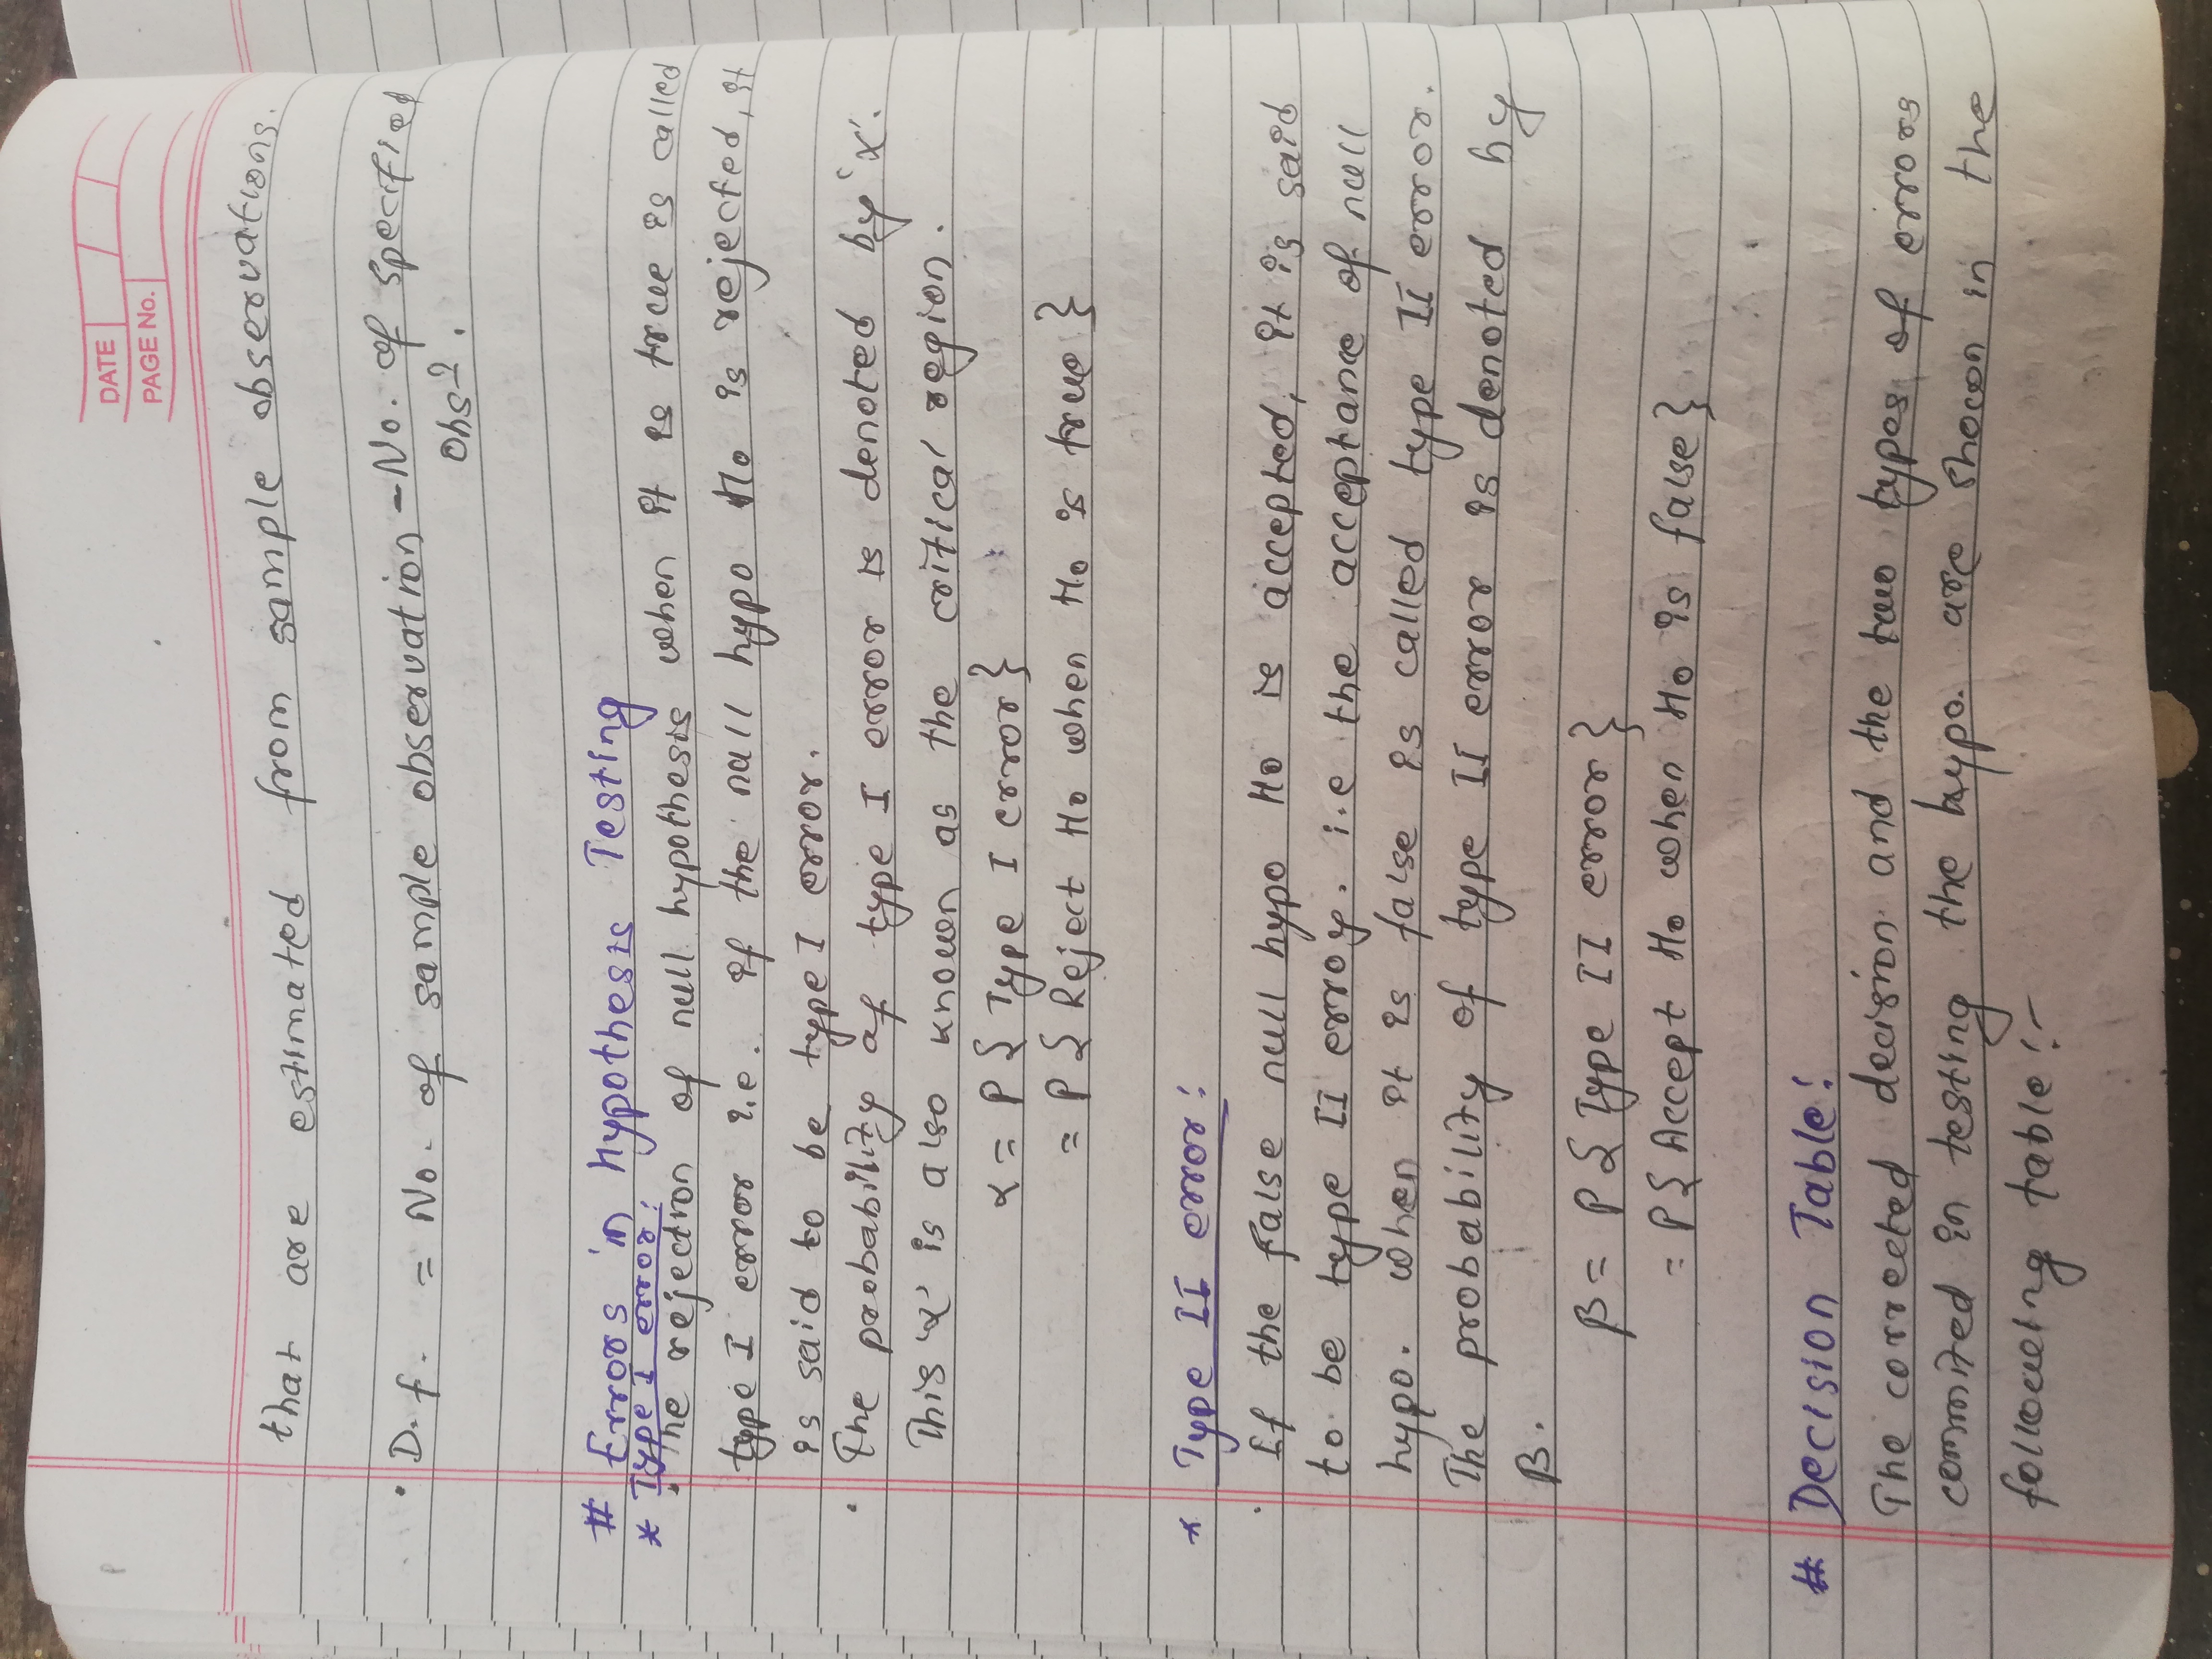 DATE
PAGE No.
that are estimated from sample observations.
• D.f. = No. of sample observation - No. of specified
Obsn.
# Errors in Hypothesis Testing
* Type I error:
• The rejection of null hypothesis when it is true is called
type I error i.e. if the null hypo Ho is rejected, it
is said to be type I error.
• The probability of type I error is denoted by 'α'.
This 'α' is also known as the critical region.
α = P { Type I error }
= P { Reject Ho when Ho is true }
* Type II error:
• If the false null hypo Ho is accepted, it is said
to be type II error. i.e the acceptance of null
hypo. when it is false is called type II error.
The probability of type II error is denoted by
β.
β = P { Type II error }
= P { Accept Ho when Ho is false }
# Decision Table:
The corrected decision and the two types of errors
commited in testing the hypo. are shown in the
following table:-